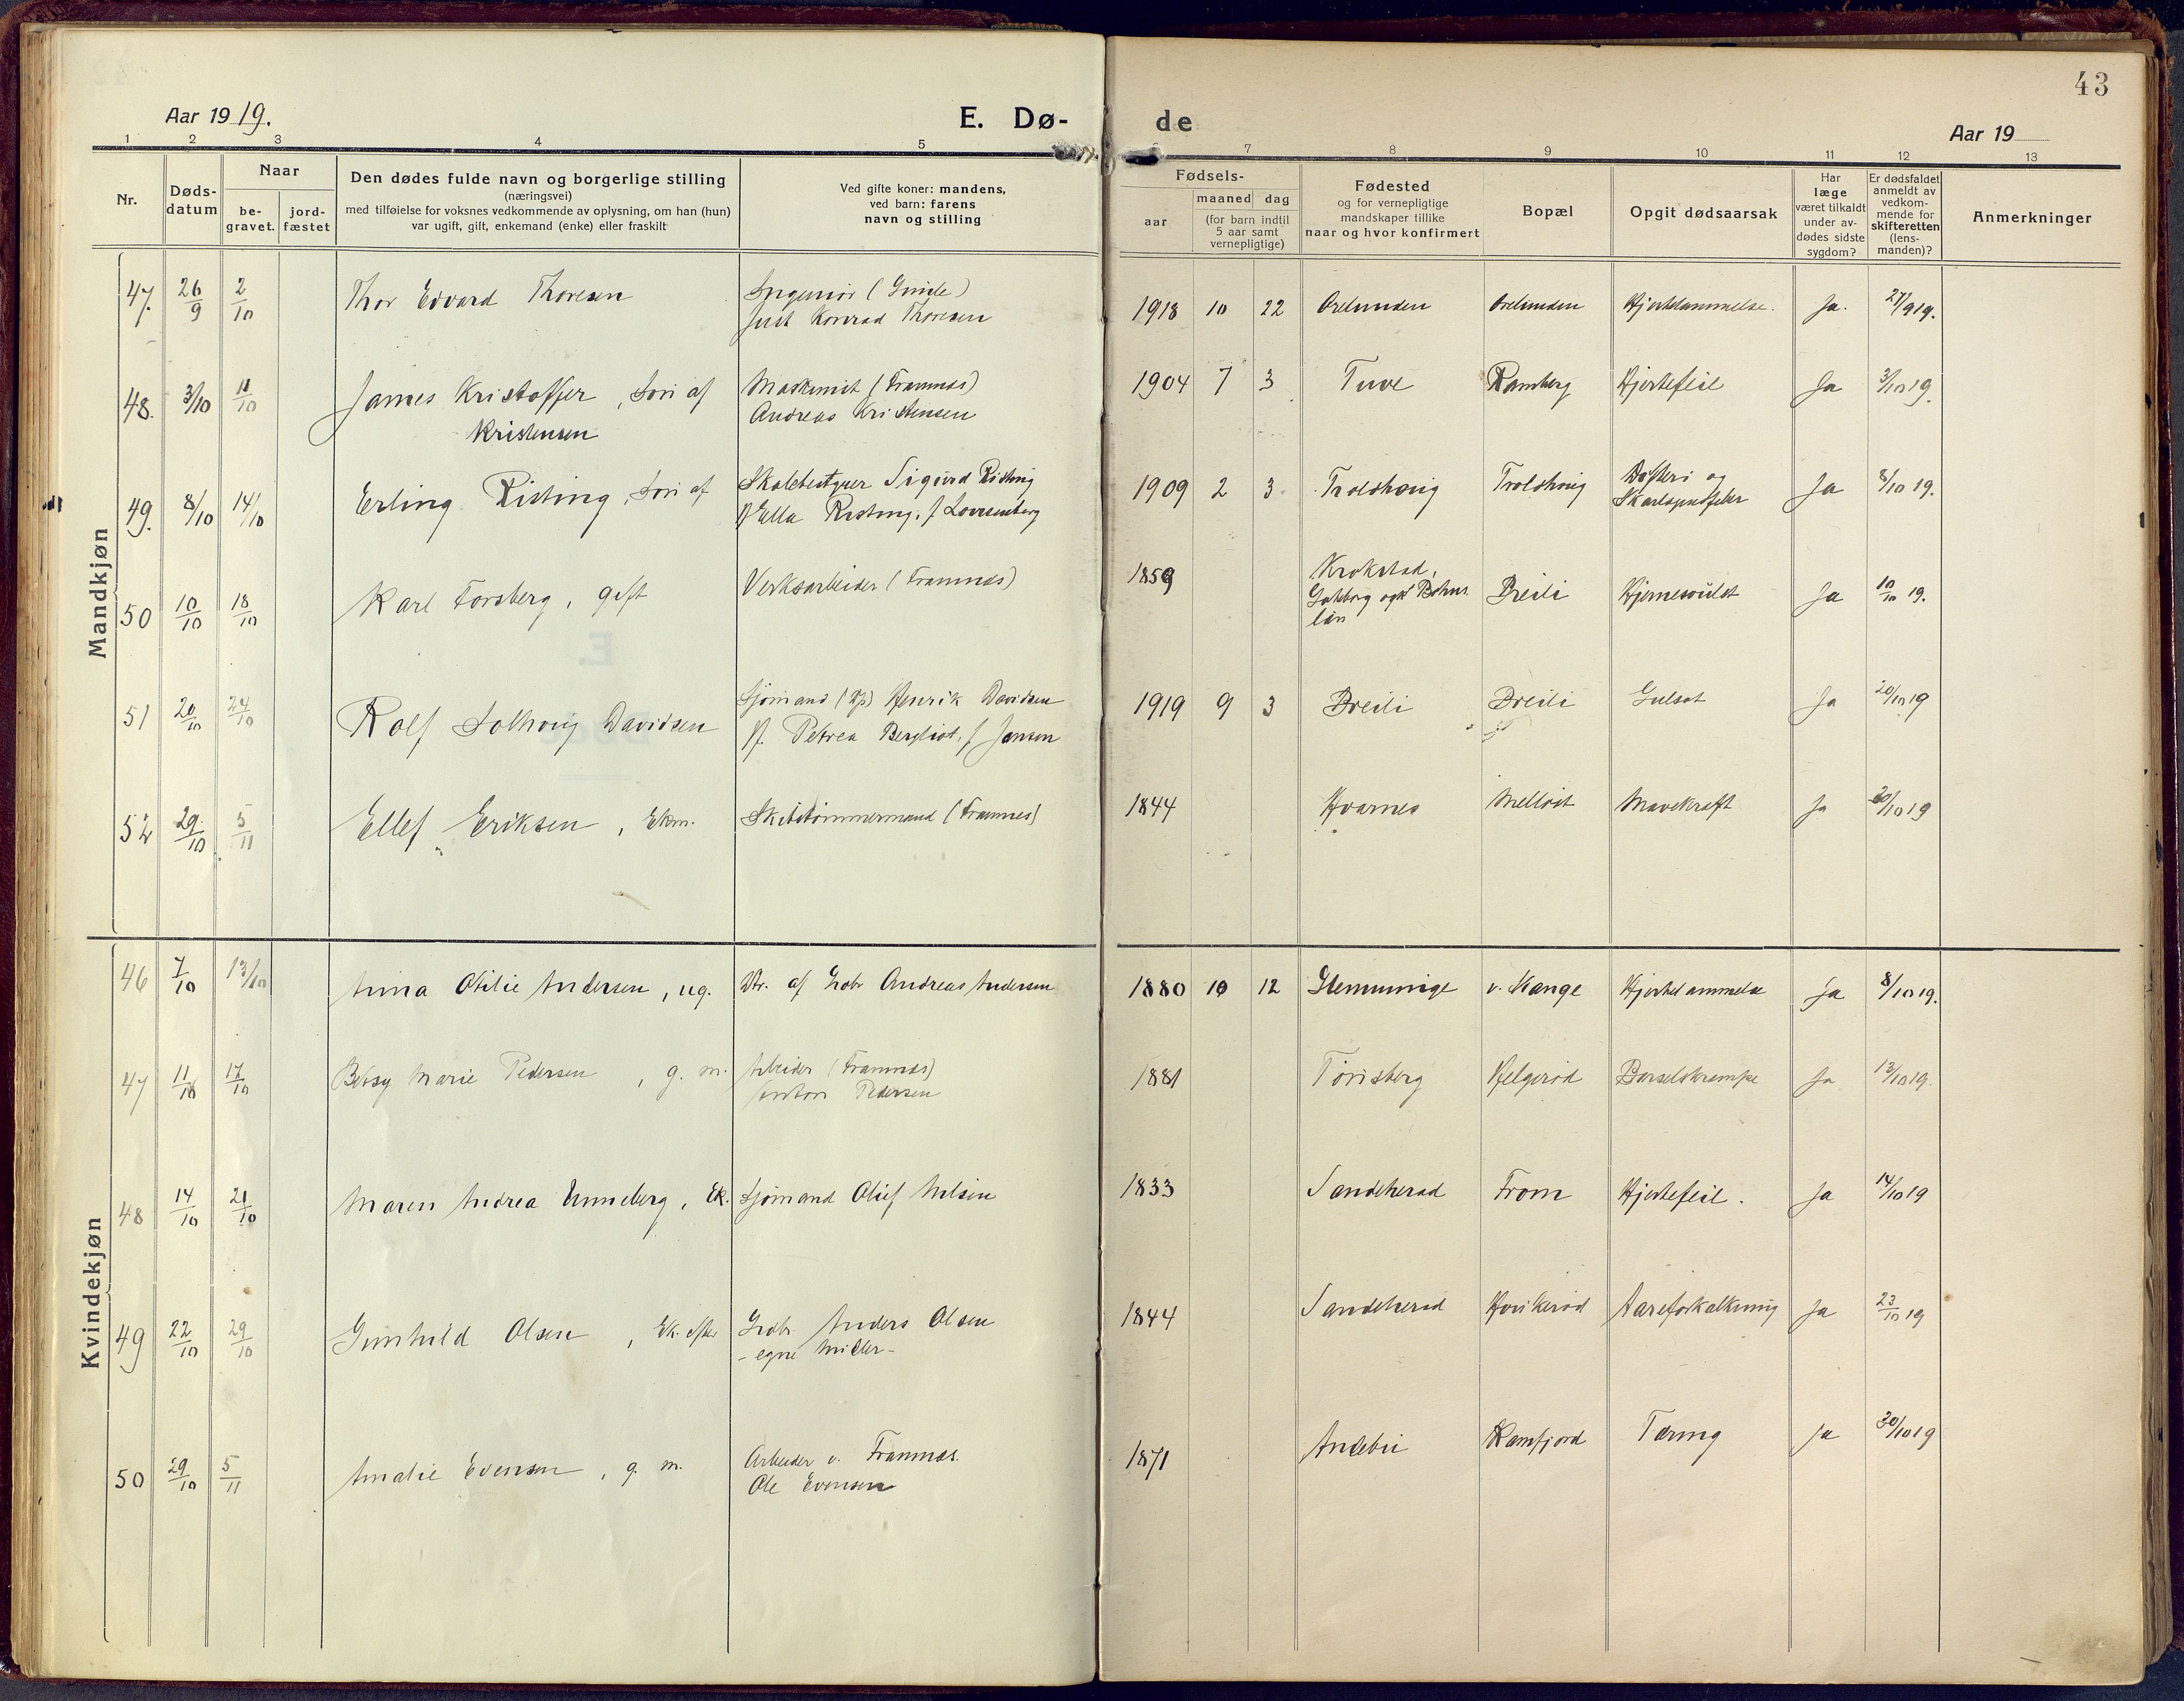 43
Aar 1919.
E. Dø-
de
Aar 19
1 2 3 4 5 7 8 9 10 11 12 13
Nr.
Døds-
datum
Naar
be-
gravet.
jord-
fæstet
Den dødes fulde navn og borgerlige stilling
(næringsvei)
med tilføielse for voksnes vedkommende av oplysning, om han (hun)
var ugift, gift, enkemand (enke) eller fraskilt
Ved gifte koner: mandens,
ved barn: farens
navn og stilling
Fødsels-
aar
maaned
dag
(for barn indtil
5 aar samt
vernepligtige)
Fødested
og for vernepligtige
mandskaper tillike
naar og hvor konfirmert
Bopæl
Opgit dødsaarsak
Har
læge
været tilkaldt
under av-
dødes sidste
sygdom?
Er dødsfaldet
anmeldt av
vedkom-
mende for
skifteretten
(lens-
manden)?
Anmerkninger
Mandkjøn
47. 26/9 2/10 Thor Edvard Thoresen Ingeniør
Konrad Thoresen
1918 10 22 Orelunden Orelunden Hjertelammelse. Ja. 27/9 19.
48. 3/10 11/10 James Kristoffer, Søn af Maskinist (Framnæs)
Kristensen Andreas Kristensen
1904 7 3 Tuve Ramberg Hjertefeil Ja 3/10 19.
49. 8/10 14/10 Erling Risting, Søn af Skolebestyrer Sigurd Risting
Ella Risting, f. Lovisenberg
1909 2 3 Troldhoug Troldhoug Difteri og
Skarlagensfeber Ja 8/10 19.
50 10/10 18/10 Karl Forsberg, gift Verksarbeider (Framnæs)
1859 Krokstad,
Gøteborg og Bohus
län Breili Hjernesvulst Ja 10/10 19.
51 20/10 24/10 Rolf Solhoug Davidsen Sjømand Henrik Davidsen
Petrea Bergliot, f. Jansen
1919 9 3 Breili Breili Gulsot Ja 20/10 19
52 29/10 5/11 Ellef Eriksen, Ekm. Skibstømmermand (Framnes)
1844 Hvarnes Melløst Mavekræft Ja 30/10 19
Kvindekjøn
46 7/10 13/10 Anna Otilie Andersen, ug. Dtr. af Grdbr Andreas Andersen
1880 10 12 Glemminge v. Kange Hjertelammelse Ja 8/10 19.
47 11/10 17/10 Betsy Marie Pedersen, g. m. Arbeider (Framnæs)
Anton Pedersen
1881 Tønsberg Helgerød Barselskrampe Ja 13/10 19.
48 14/10 21/10 Maren Andrea Unneberg, Ek. Sjømand Oluf Nilsen
1833 Sandeherad From Hjertefeil. Ja 14/10 19
49 22/10 29/10 Gunhild Olsen, Ek. efter Grdbr. Anders Olsen
- egne Midler -
1844 Sandeherad Hvikerød Aareforkalkning Ja 23/10 19
50 29/10 5/11 Amalie Evensen, g. m. Arbeider v. Framnæs.
Ole Evensen
1871 Andebu Kamfjord Tæring Ja 30/10 19